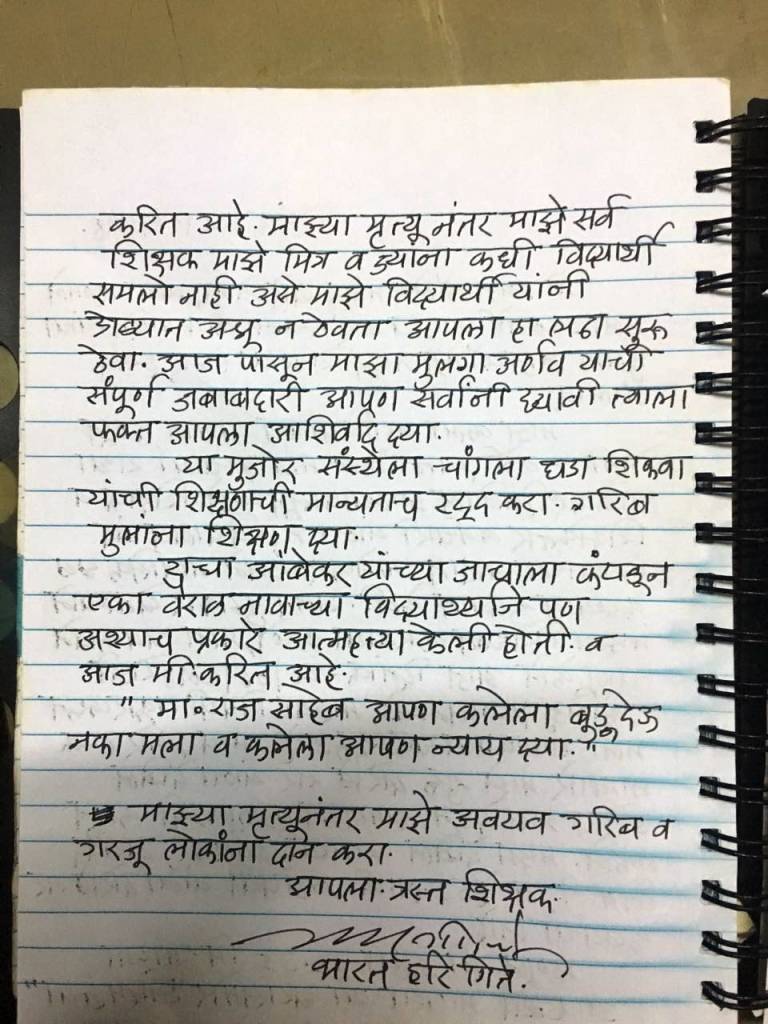 करित आहे. माझ्या मृत्यू नंतर माझे सर्व
शिक्षक माझे मित्र व ज्यांना कधी विद्यार्थी
समलो नाही असे माझे विद्यार्थी यांनी
डोळ्यात अश्रू न ठेवता आपला हा लढा सुरू
ठेवा. आज पासून माझा मुलगा अर्णव याची
संपूर्ण जबाबदारी आपण सर्वांनी घ्यावी त्याला
फक्त आपला आशिर्वाद द्या.
या मुजोर संस्थेला चांगला धडा शिकवा
यांची शिक्षणाची मान्यताच रद्द करा. गरिब
मुलांना शिक्षण द्या.
प्राचार्य आंबेकर यांच्या जाचाला कंटाळून
एका वेराळ नावाच्या विद्यार्थ्याने पण
अश्याच प्रकारे आत्महत्या केली होती. व
आज मी करित आहे.
" मा. राज साहेब आपण कलेला बुडू देऊ
नका मला व कलेला आपण न्याय द्या."
माझ्या मृत्यूनंतर माझे अवयव गरिब व
गरजू लोकांना दान करा.
आपला त्रस्त शिक्षक.
भारत हरि गिते.